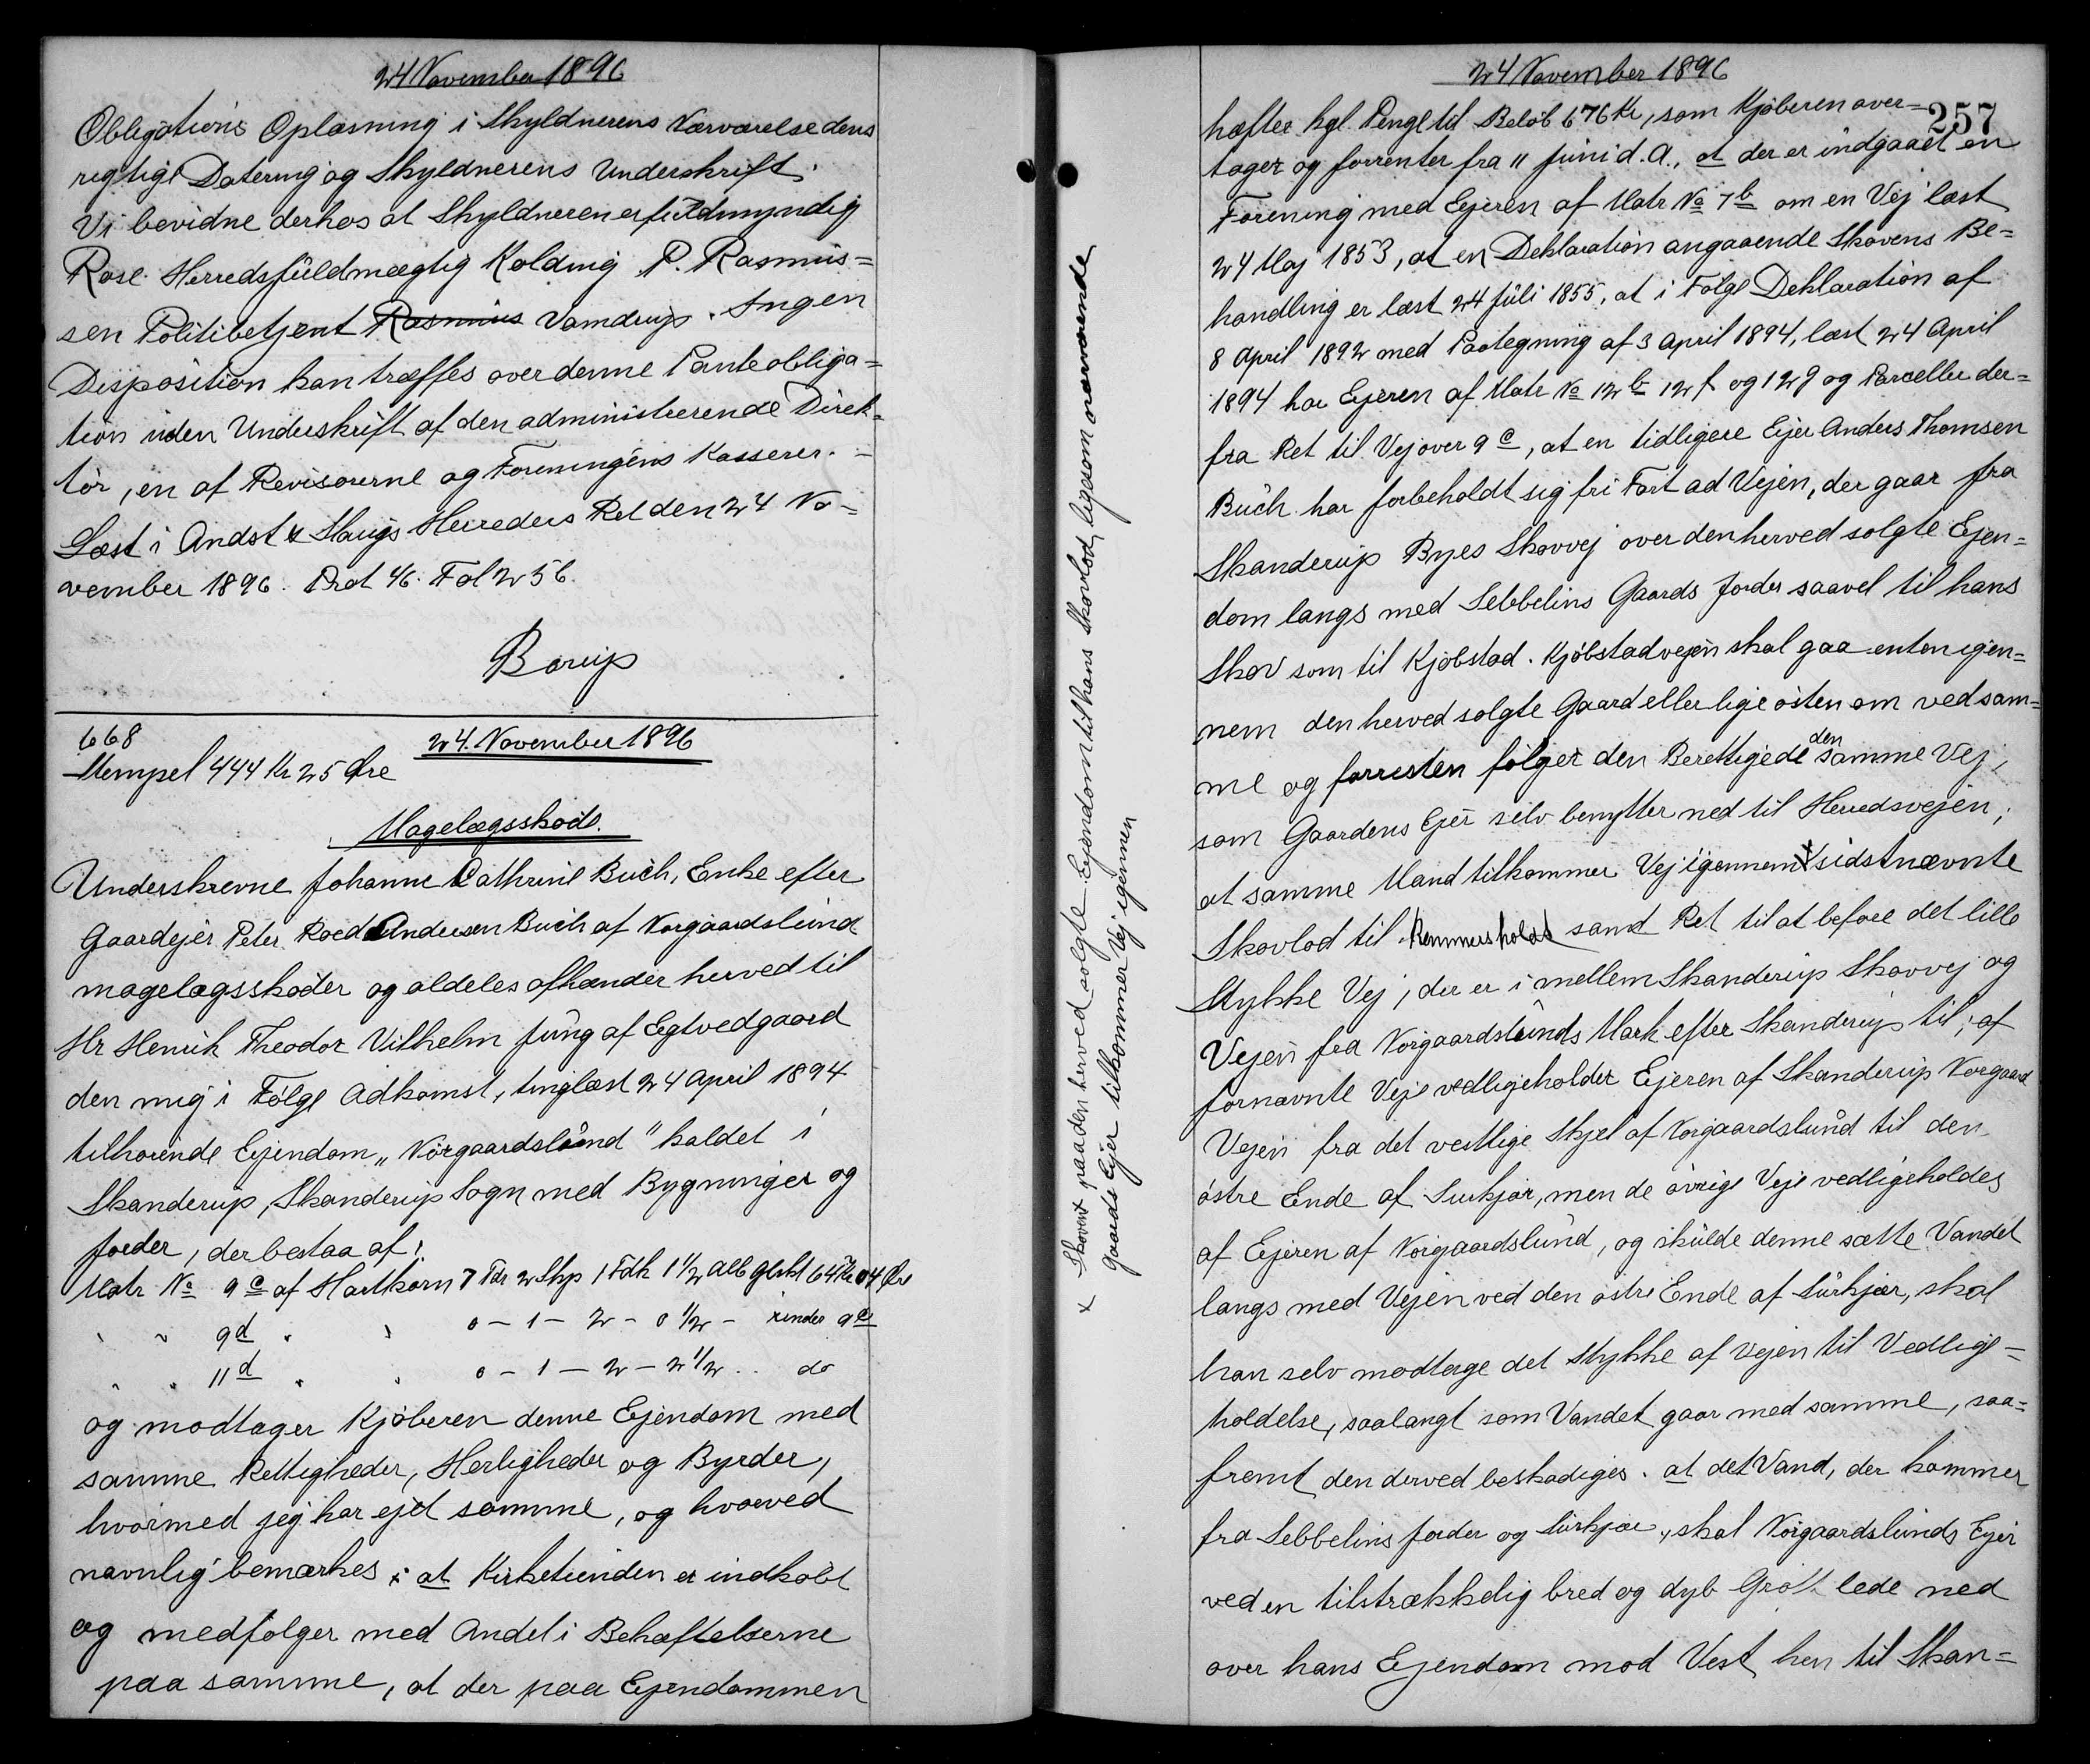 24 November 1896
Obligations Oplæsning i Skyldnerens Nærværelse dens
rigtige Datering og Skyldnerens Underskrift.
Vi bevidne derhos at Skyldneren er fuldmyndig
Rose Herredsfuldmægtig Kolding P. Rasmus=
sen Politibetjent Rasmus Vamdrup. Ingen
Disposition kan træffes over denne Panteobliga=
tion uden Underskrift af den administrerende Direk=
tør, en af Revisorerne og Foreningens Kasserer. =
Læst i Andst & Slaugs Herreders Ret den 24 No=
vember 1896. Prot 46. Fol 256.
Borup
668
24. November 1896
Stempel 444 Kr 25 Øre
Magelægsskøde.
Underskrevne Johanne Cathrine Buch, Enke efter
Gaardejer Peter Roed Andersen Buch af Norgaardslund
magelægsskøder og aldeles afhænder herved til
Hr Henrik Theodor Vilhelm Jung af Egtvedgaard
den mig i Følge Adkomst, tinglæst 24 April 1894
tilhørende Ejendom „Nørgaardslund" kaldet i
Skanderup, Skanderup Sogn med Bygninger og
Jorder, der bestaa af:
Matr No 9c af Hartkorn 7 Tdr 2 Skp 1 Fdk 1 1/2 Alb Glskt 64 Kr 04 Øre
" " 9d " " 0 - 1 - 2 - 0 1/2 - under 9c
" " 11d " " 0 - 1 - 2 - 2 1/2 .. do
og modtager Kjøberen denne Ejendom med
samme Rettigheder, Herligheder og Byrder,
hvormed jeg har ejet samme, og hvorved
navnlig bemærkes: at Kirketienden er indkøbt
og medfølger med Andel i Behæftelserne
paa samme, at der paa Ejendommen
x Skovent paa den herved solgte Ejendom til hans Skovlod, ligesom nævnende
gaards Ejer tilkommer Vej igennem
24 November 1896
257
hæfter kgl. Penge til Beløb 676 Kr, som Kjøberen over=
tager og forrenter fra 11 Juni d. A., at der er indgaaet en
Forening med Ejeren af Matr No 7b om en Vej læst
24 Maj 1853, at en Deklaration angaaende Skovens Be=
handling er læst 24 Juli 1855, at i Følge Deklaration af
8 April 1892 med Paategning af 3 April 1894, læst 24 April
1894 har Ejeren af Matr No 12b 12f og 12g og Parceller der=
fra Ret til Vej over 9c, at en tidligere Ejer Anders Thomsen
Buch har forbeholdt sig fri Fart ad Vejen, der gaar fra
Skanderup Byes Skovvej over den herved solgte Ejen=
dom langs med Sebbelins Gaards Jorder saavel til hans
Skov som til Kjøbstad. Kjøbstadvejen skal gaa enten igen=
nem den herved solgte Gaard eller lige østen om ved sam=
me og forresten følger den Berettigede den samme Vej,
som Gaardens Ejer selv benytter ned til Herredsvejen;
at samme Mand tilkommer Vej igennem x sidstnævnte
Skovlod til Remmersholdt samt Ret til at befare det lille
Stykke Vej, der er i mellem Skanderup Skovvej og
Vejen fra Norgaardslunds Mark efter Skanderup til; af
fornævnte Veje vedligeholder Ejeren af Skanderup Norgaard
Vejen fra det vestlige Skjel af Norgaardslund til den
østre Ende af Surkjær, men de øvrige Veje vedligeholdes
af Ejeren af Norgaardslund, og skulde denne sætte Vandet
langs med Vejen ved den østre Ende af Surkjær, skal
han selv modtage det Stykke af Vejen til Vedlige=
holdelse, saalangt som Vandet gaar med samme, saa=
fremt den derved beskadiges. at det Vand, der kommer
fra Sebbelins Jorder og Surkjær, skal Norgaardslunds Ejer
ved en tilstrækkelig bred og dyb Grøft lede ned
over hans Ejendom mod Vest hen til Skan=